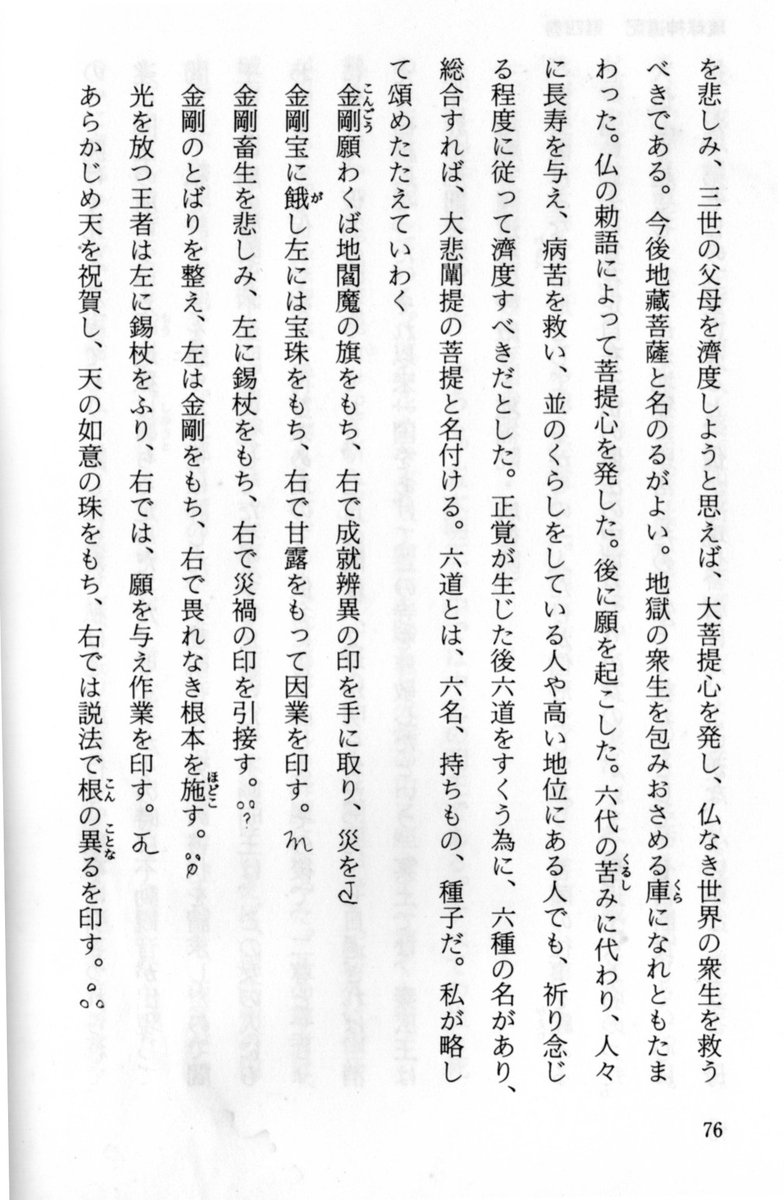 を悲しみ、三世の父母を濟度しようと思えば、大菩提心を発し、仏なき世界の衆生を救う
べきである。今後地藏菩薩と名のるがよい。地獄の衆生を包みおさめる庫くらになれともたま
わった。仏の勅語によって菩提心を発した。後に願を起こした。六代の苦くるしみに代わり、人々
に長寿を与え、病苦を救い、並のくらしをしている人や高い地位にある人でも、祈り念じ
る程度に従って濟度すべきだとした。正覚が生じた後六道をすくう為に、六種の名があり、
総合すれば、大悲闡提の菩提と名付ける。六道とは、六名、持ちもの、種子だ。私が略し
て頌めたたえていわく
金剛こんごう願わくば地閻魔の旗をもち、右で成就辨異の印を手に取り、災を
金剛宝に餓がし左には宝珠をもち、右で甘露をもって因業を印す。
金剛畜生を悲しみ、左に錫杖をもち、右で災禍の印を引接す。
金剛のとばりを整え、左は金剛をもち、右で畏れなき根本を施ほどこす。
光を放つ王者は左に錫杖をふり、右では、願を与え作業を印す。
あらかじめ天を祝賀し、天の如意の珠をもち、右では説法で根こんの異ことなるを印す。
76